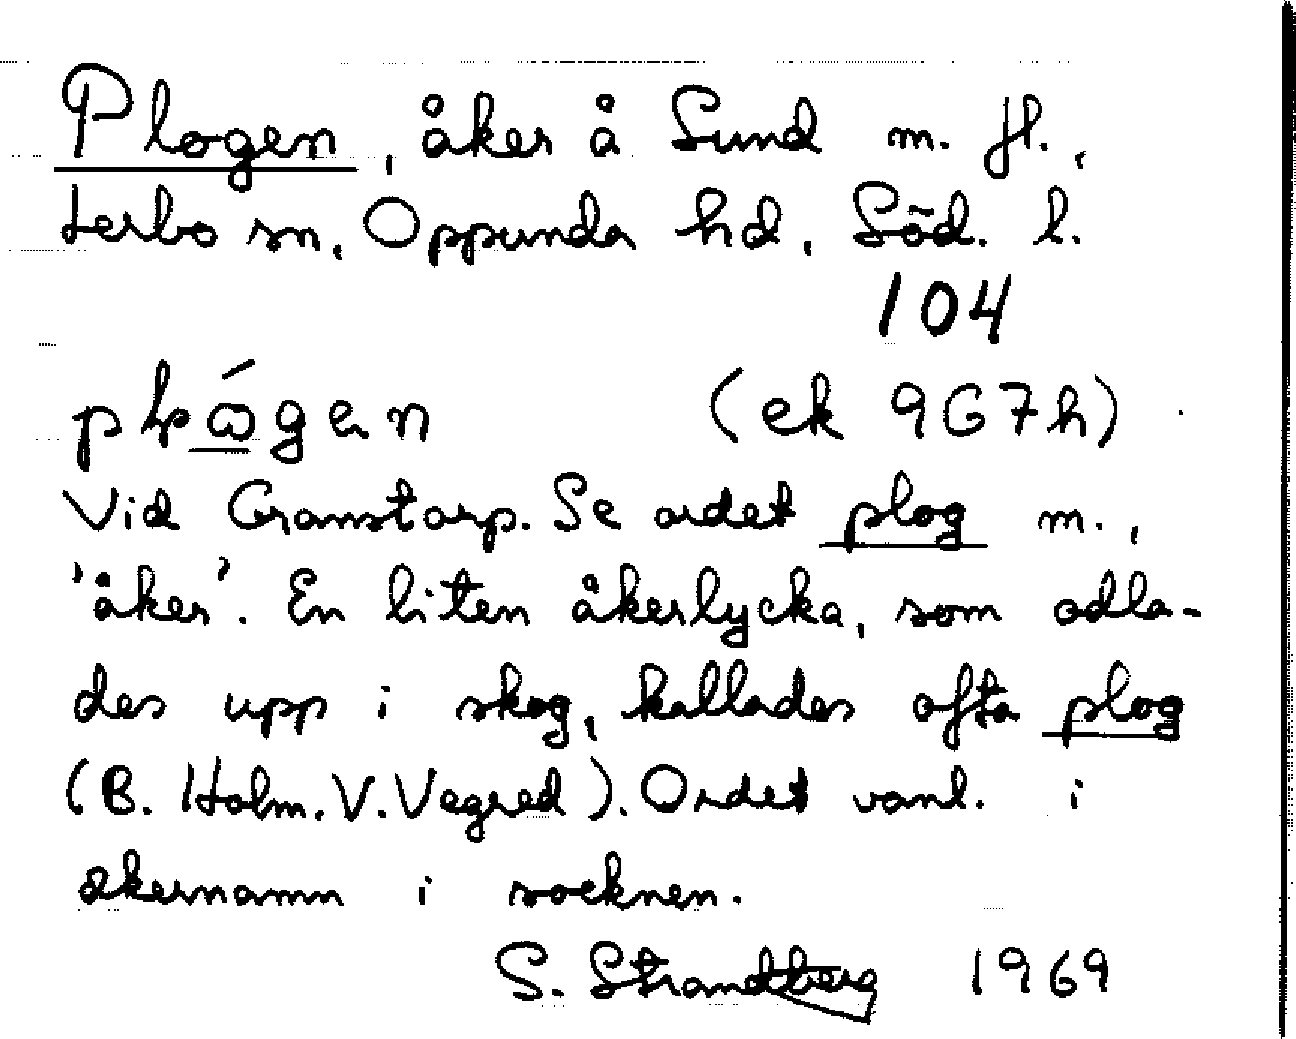 Plogen, åker å Sund m. fl.,
Lerbo sn, Oppunda hd, Söd. l.
104
(ek 9G7h)
Vid Granstorp. Se ordet plog m.,
'åker'. En liten åkerlycka, som odla-
des upp i skog, kallades ofta plog
(B. Holm. V. Vegred). Ordet vanl. i
åkernamn i socknen.
S. Strandberg 1969